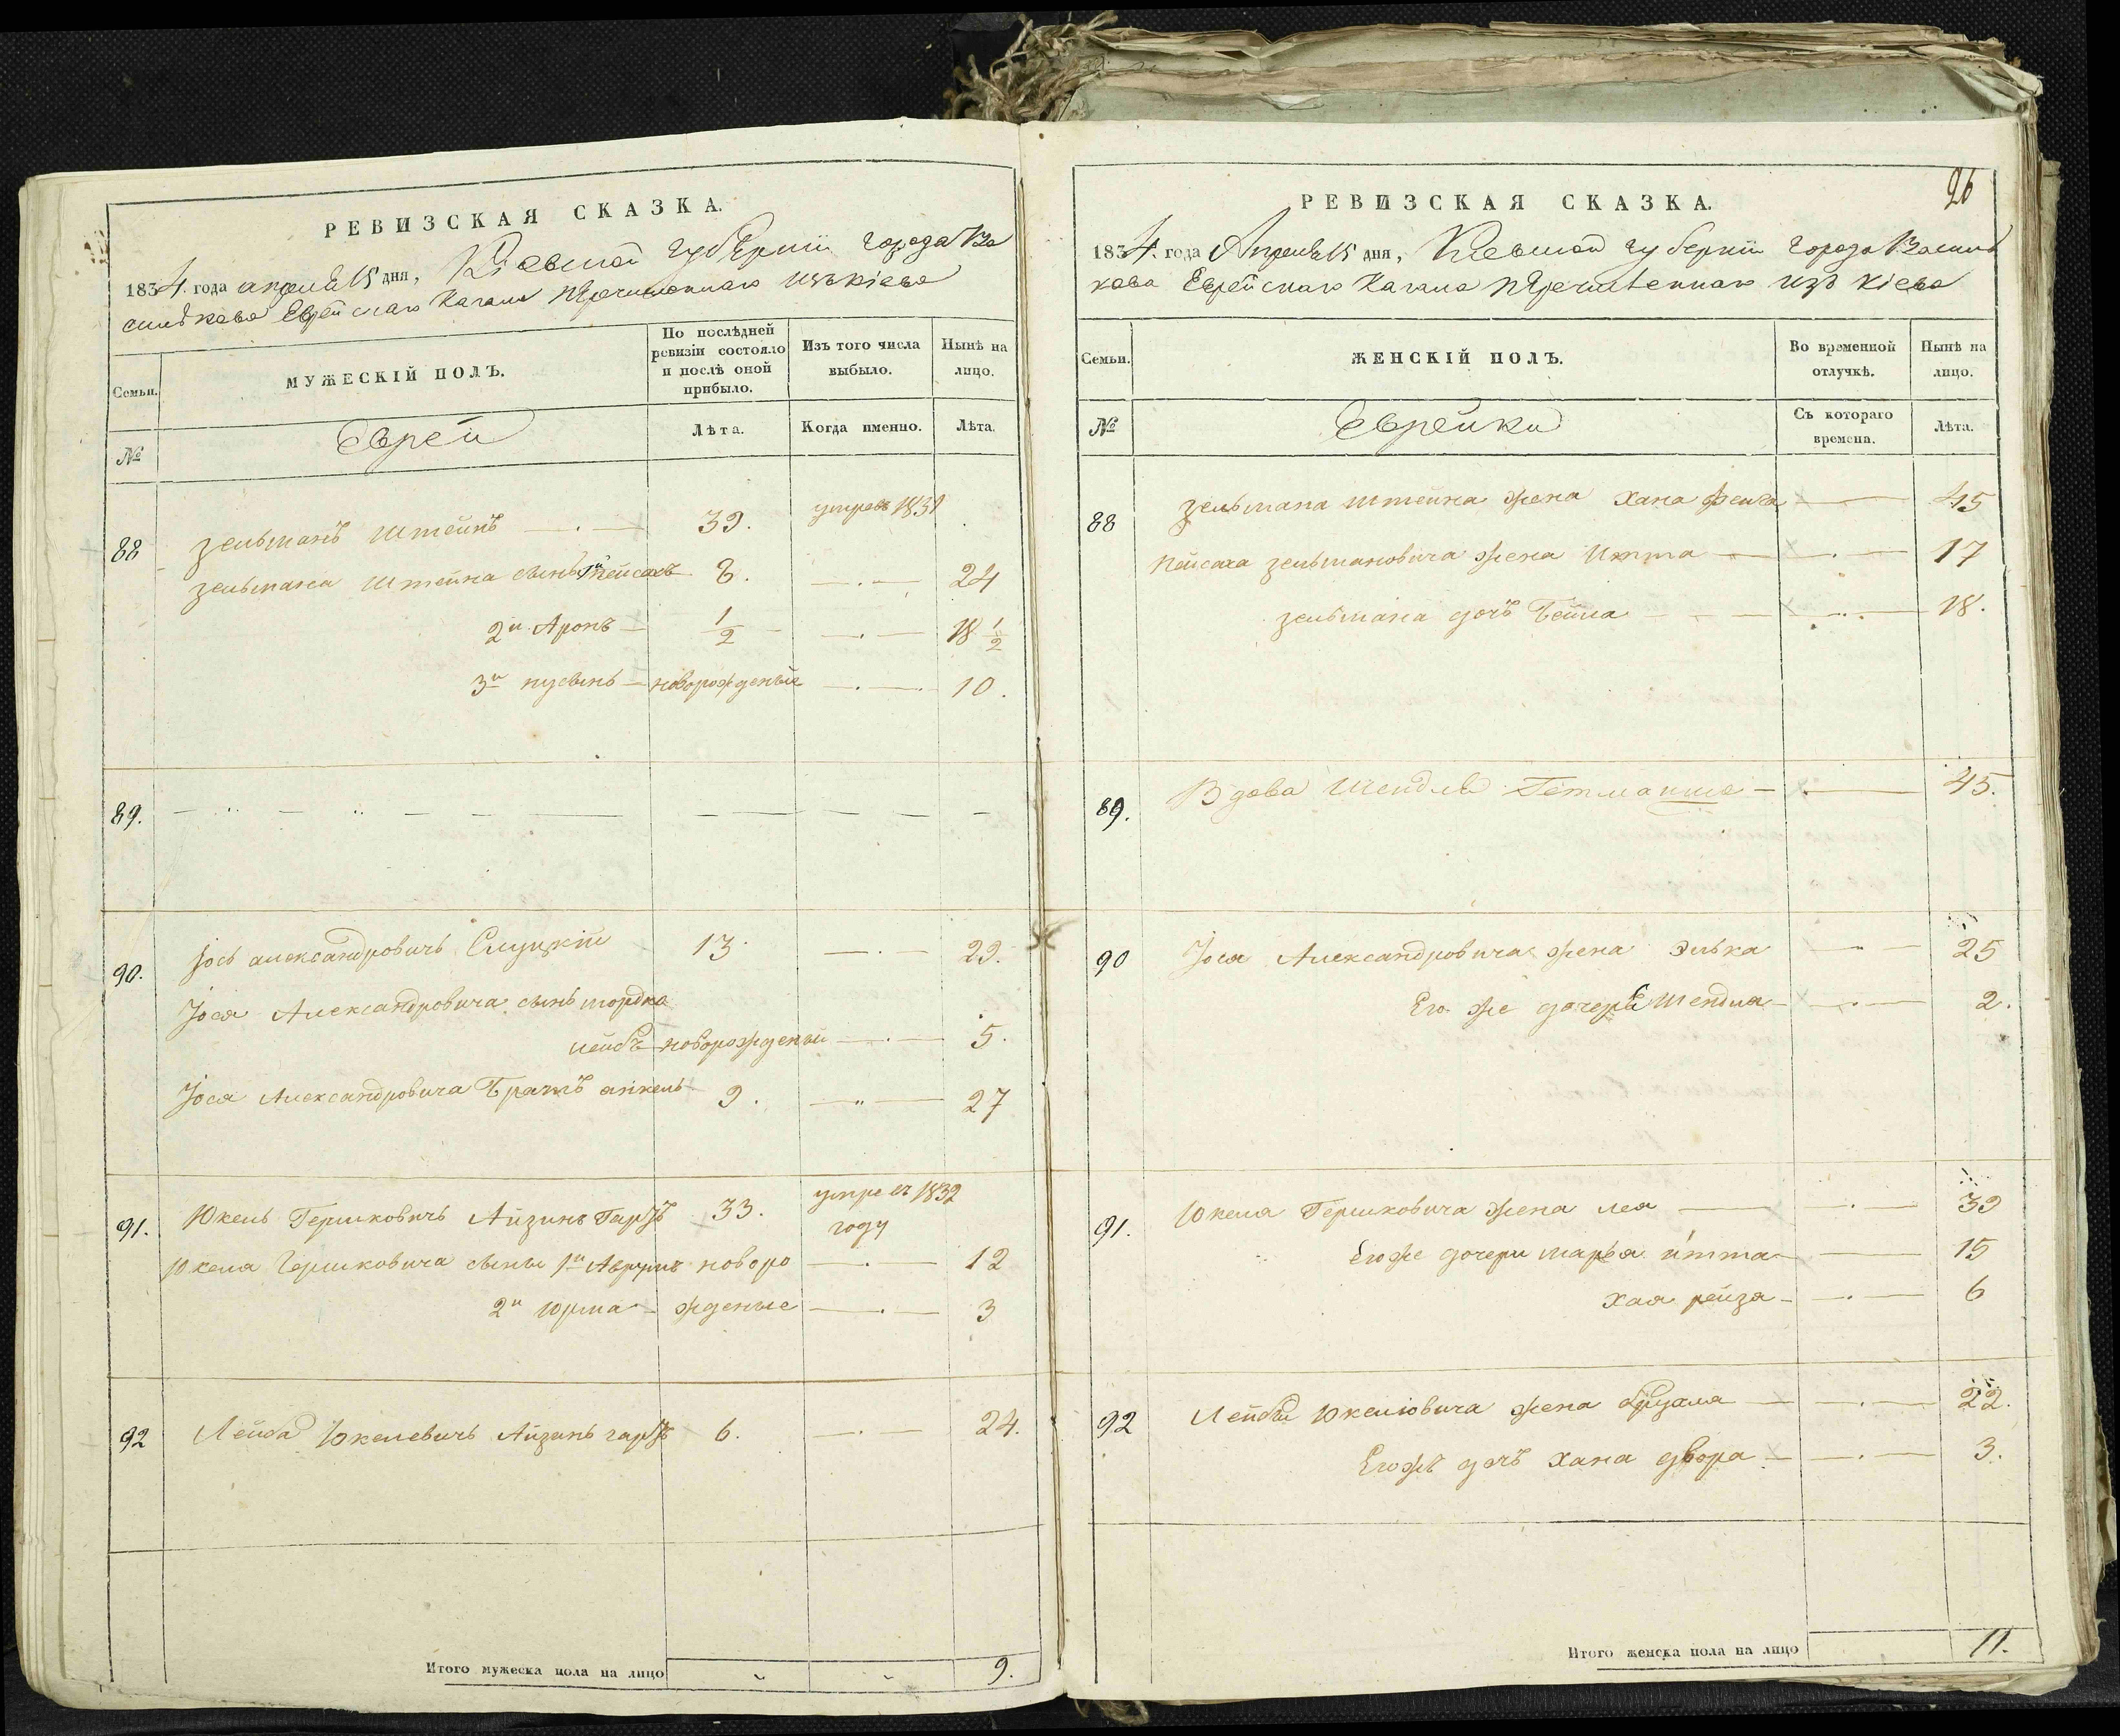 РЕВИЗСКАЯ СКАЗКА.
1834. года апреля 15 дня, Кіевской губерніи города Ва
силькова Еврейскаго Кагала перечисленнаго изъ Кіева
Семьи.
МУЖЕСКІЙ ПОЛЪ.
По послѣдней ревизіи состояло и послѣ оной прибыло.
Изъ того числа выбыло.
Нынѣ на лицо.
№
Еврей
Лѣта.
Когда именно.
Лѣта.
88 зельманъ Штейнъ 39. умре въ 1831
зельмана Штейна сынъ 1й Пейсахъ 8. 24
2й Аронъ ½ 18 ½
3й нусынъ новорожденые 10.
89.
90. Іось александровичъ Слуцкій 13. 29.
Іося Александровича сынъ мордко
лейбъ новорожденый 5.
Іося Александровича Братъ анкель 9. 27
91. Юкель Гершковичъ Айзинъ Гарзъ 33. умре въ 1832
году
Юкеля Гершковича сыны 1й Аврумъ новоро 12
2й юрма жденые 3
92 Лейба Юкелевичъ Айзинъ гарзъ 6. 24.
Итого мужеска пола на лицо 9.
26
РЕВИЗСКАЯ СКАЗКА.
1834. года Апреля 15 дня, Кіевской губерніи города Василь
кова Еврейскаго Кагала перечисленнаго изъ Кіева
Семьи.
ЖЕНСКІЙ ПОЛЪ.
Во временной отлучкѣ.
Нынѣ на лицо.
№
Еврейки
Съ котораго времена.
Лѣта.
88 зельмана штейна жена Хана фейга 45
Пейсаха зельмановича жена Итта 17
зельмана дочъ Бейла 18.
89. Вдова Шендля Гетманша 45.
90 Іося Александровича жена Элька 25
Его же дочерь Шендля 2.
91. Юкеля Гершковича жена лея 39
Егоже дочери марья итта 15
хая рейза 6
92 Лейбы Юкелювича жена 22.
Егожъ дочъ хана двора 3.
Итого женска пола на лицо 11.